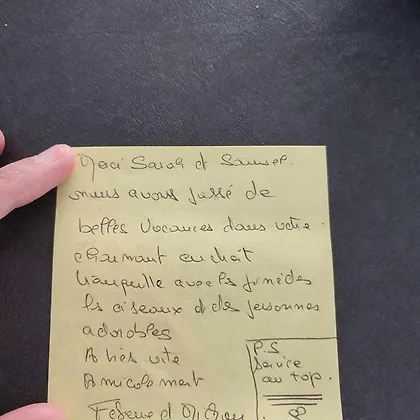 Merci Sarah et Samuel.
nous avons passé de
belles vacances dans votre
charmant endroit
tranquille avec les
les oiseaux et des personnes
adorables
A très vite
Amicalement
P.S
Service
au top.